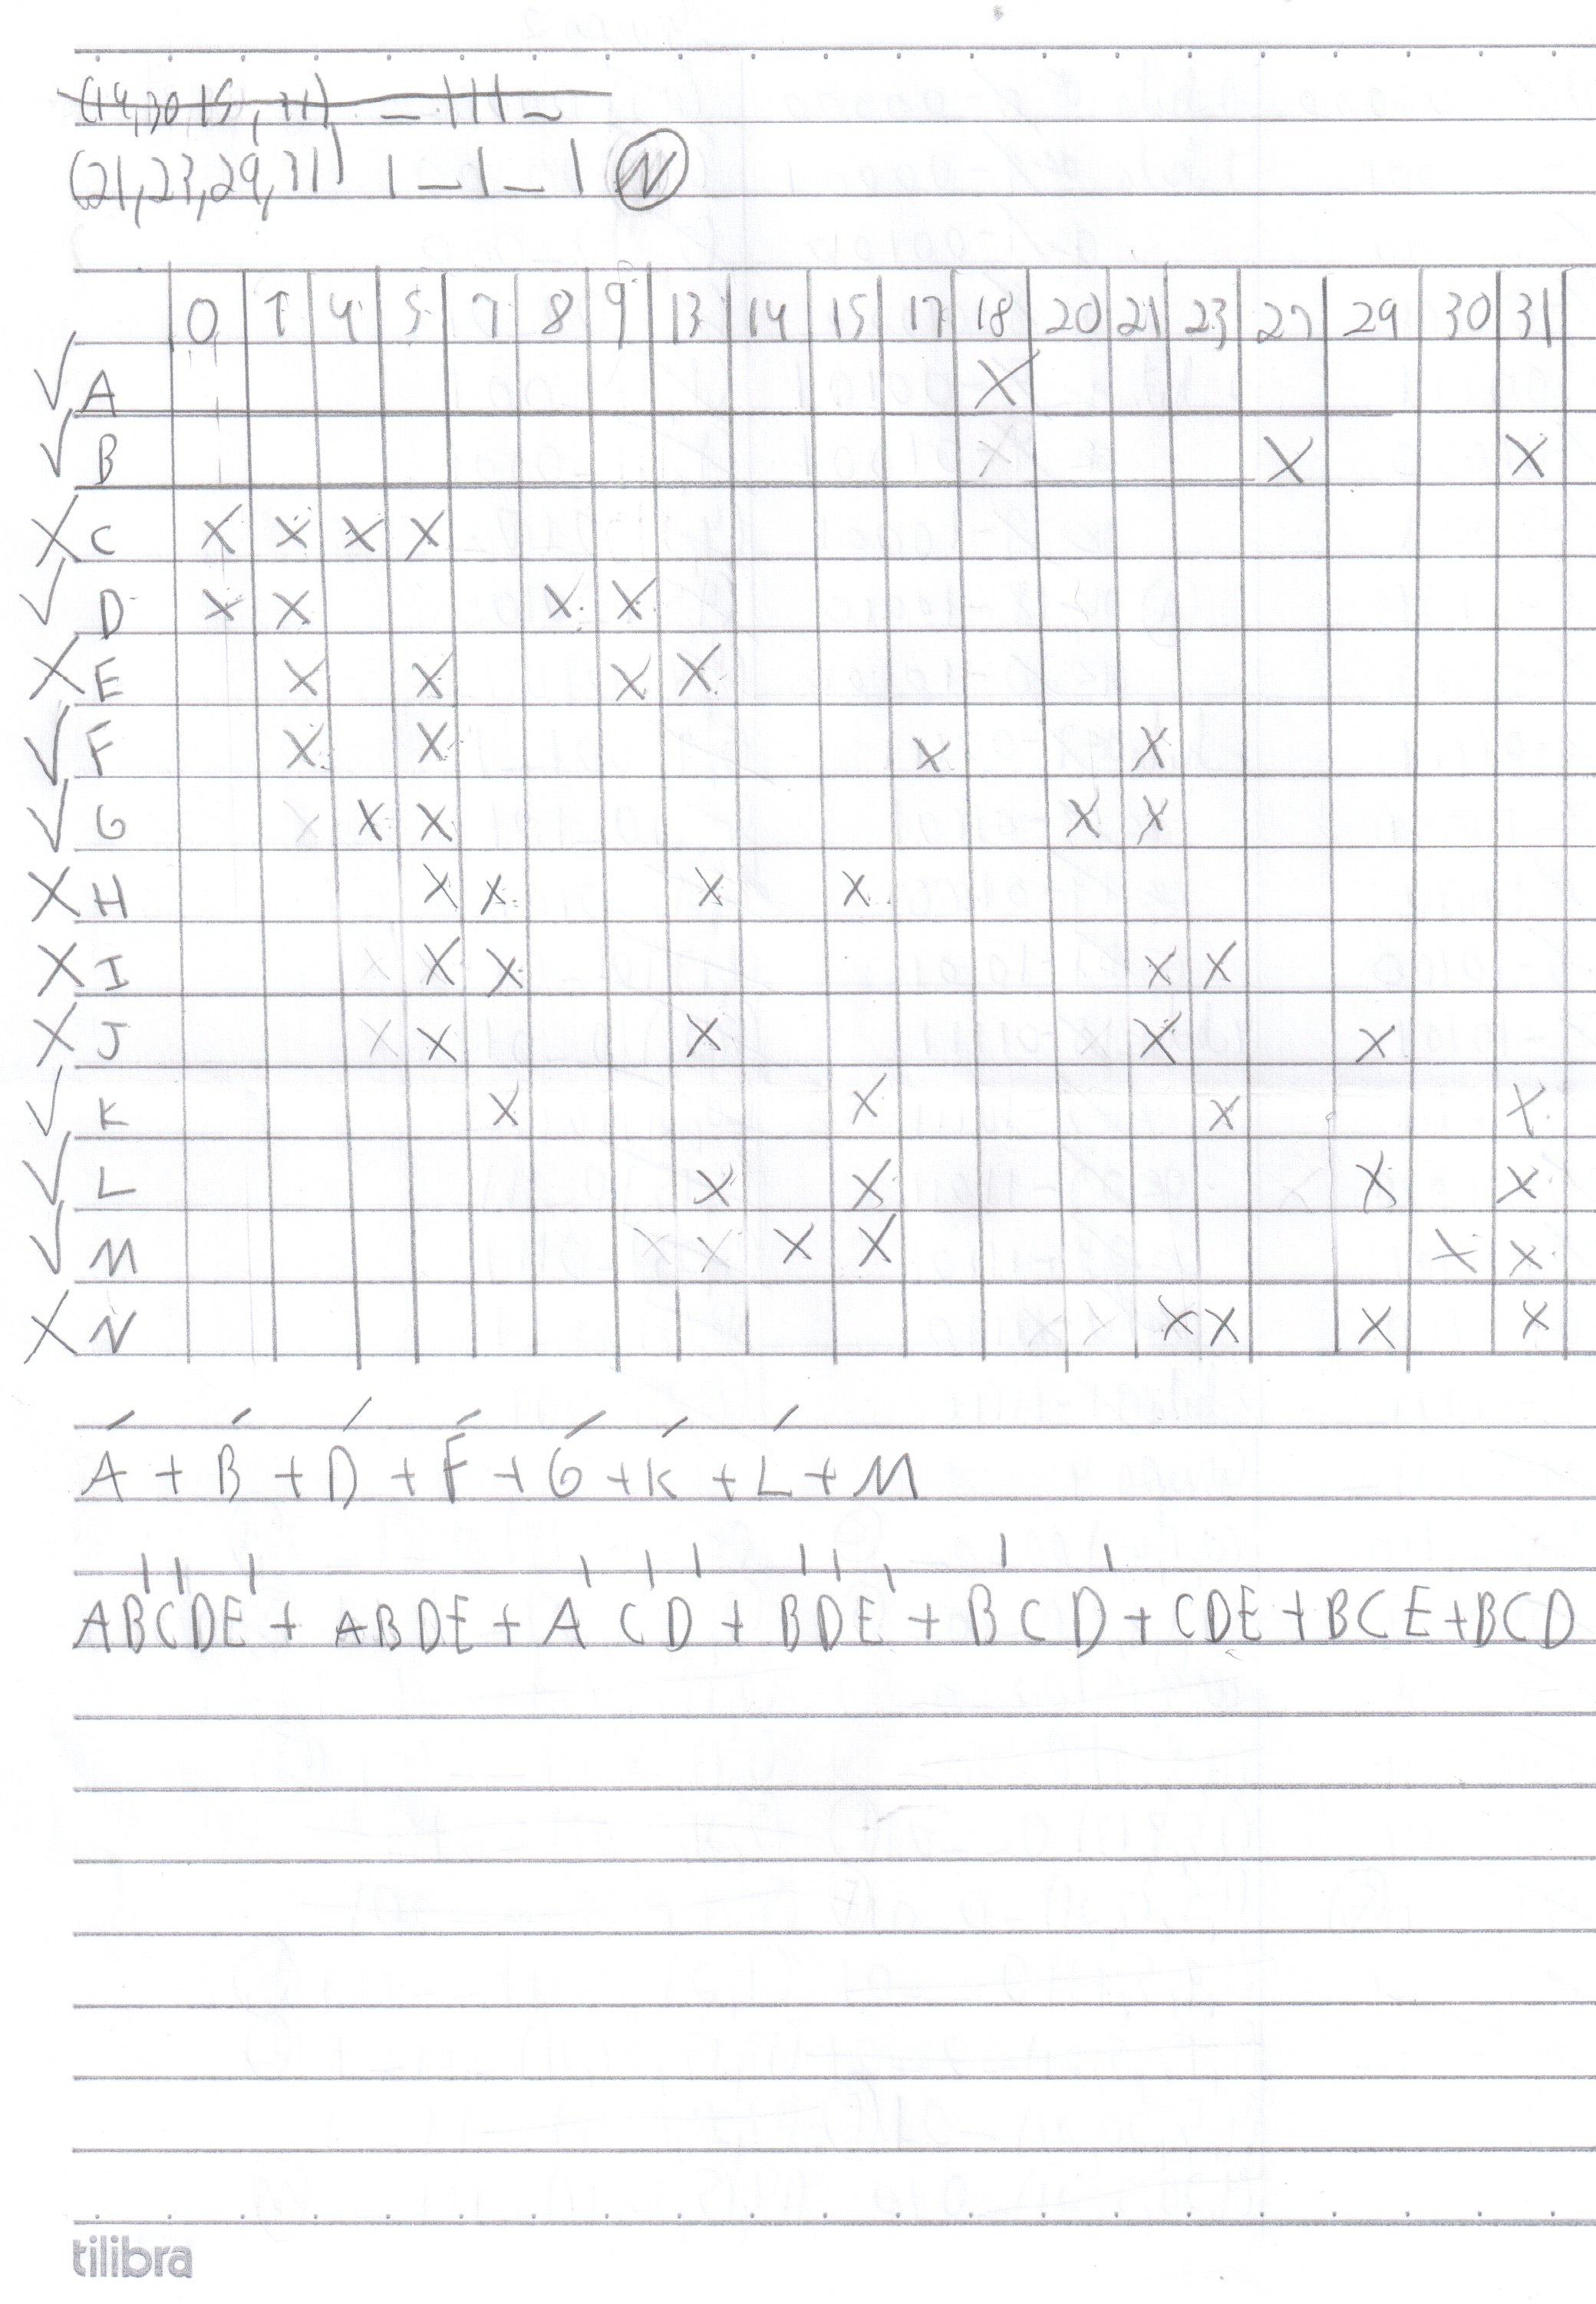 (14,30,15,31) - 111 -
(21,23,29,31) 1 - 1 - 1 N
0 1 4 5 7 8 9 13 14 15 17 18 20 21 23 27 29 30 31
√ A X
√ B X X
X C X X X X
√ D X X X X
X E X X X X
√ F X X X X
√ G X X X X
X H X X X X
X I X X X X
X J X X X X
√ K X X X X
√ L X X X X
√ M X X X X
X N X X X X
A + B + D + F + G + K + L + M
AB'C'DE' + ABDE + A'C'D' + B'D'E' + B'CD' + CDE + BCE + BCD
tilibra